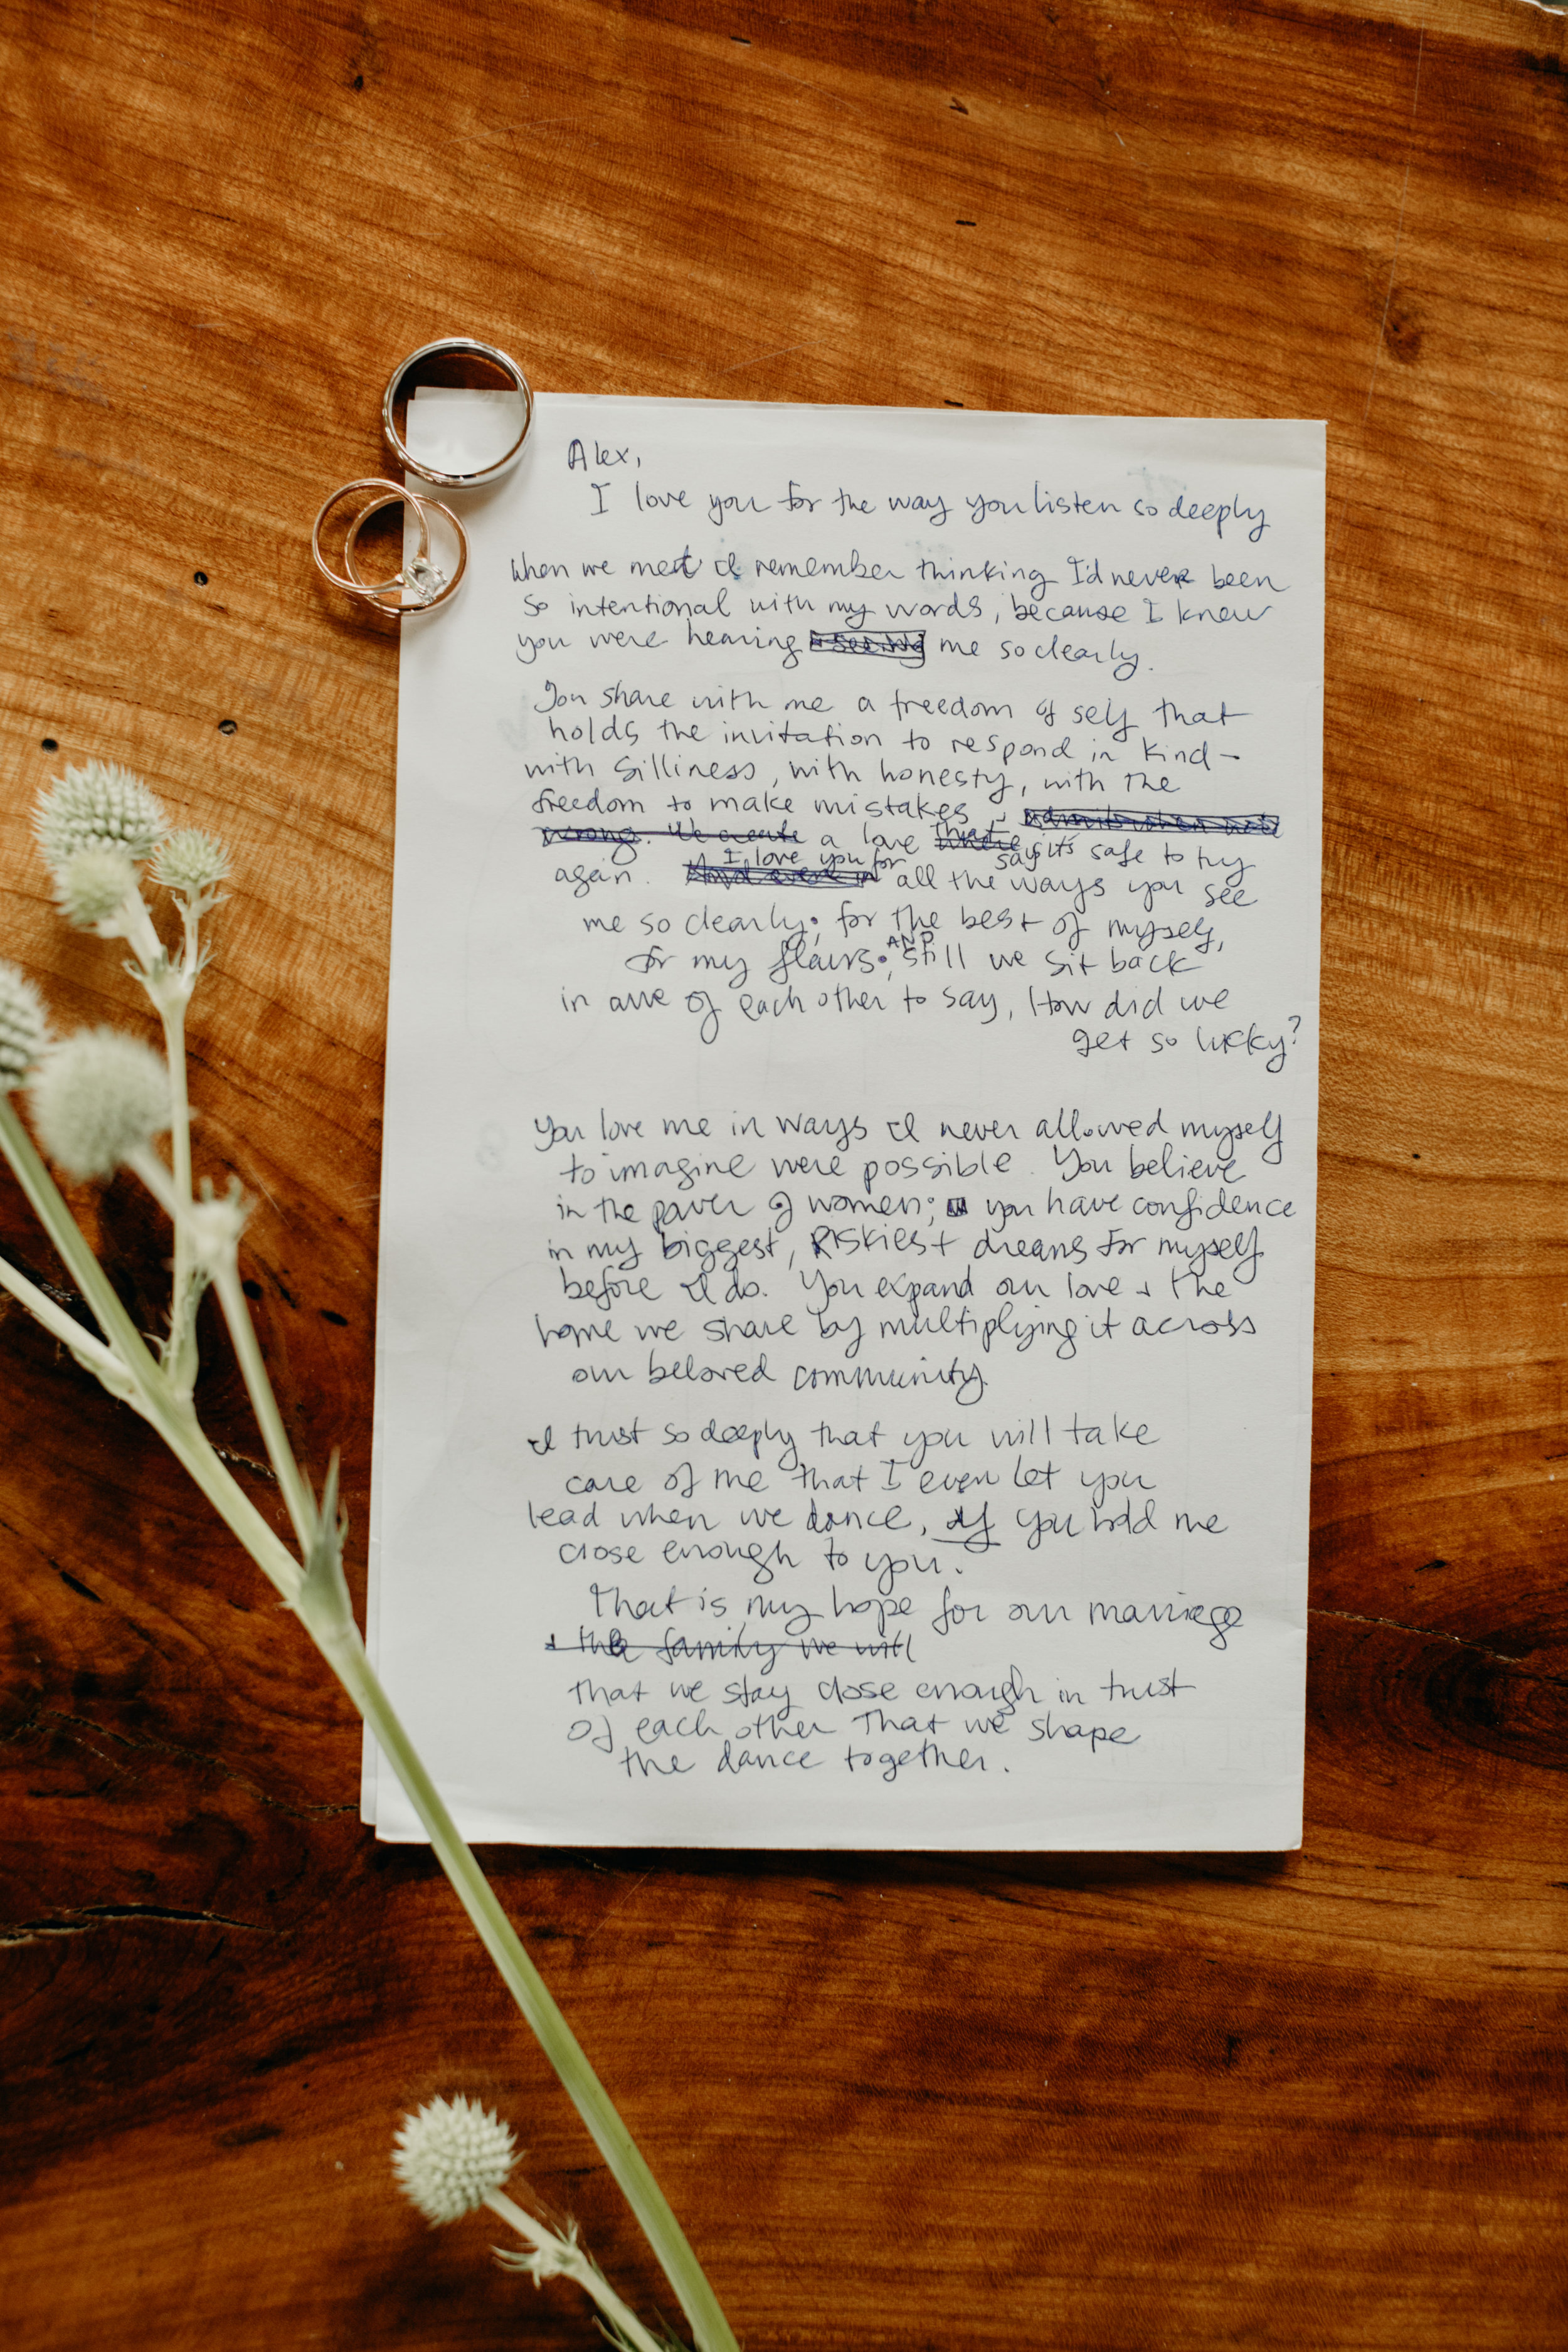 Alex,
I love you for the way you listen so deeply
When we met I remember thinking I'd never been
so intentional with my words, because I knew
you were hearing me so clearly.
You share with me a freedom of self that
holds the invitation to respond in kind –
with silliness, with honesty, with the
freedom to make mistakes,
wrong. We create a love that says it's safe to try
again. I love you for all the ways you see
me so clearly; for the best of myself,
for my flaws; AND still we sit back
in awe of each other to say, How did we
get so lucky?
You love me in ways I never allowed myself
to imagine were possible. You believe
in the power of women; you have confidence
in my biggest, RISKIEST dreams for myself
before I do. You expand our love + the
home we share by multiplying it across
our beloved community.
I trust so deeply that you will take
care of me that I even let you
lead when we dance, if you hold me
close enough to you.
That is my hope for our marriage
+ the family we will
that we stay close enough in trust
of each other that we shape
the dance together.